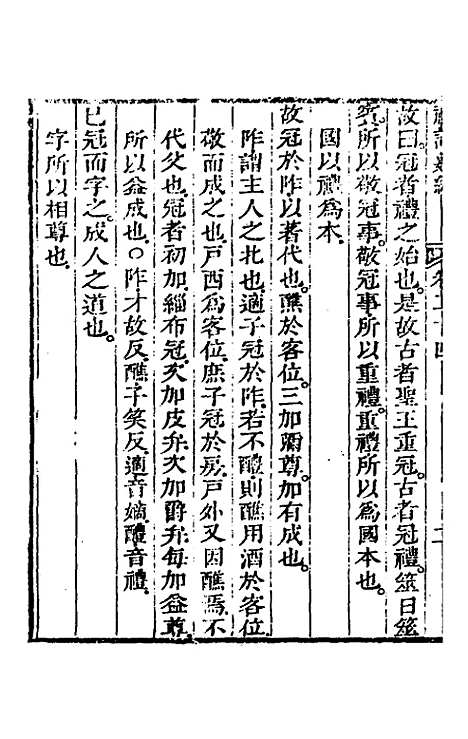 故曰。冠者禮之始也。是故古者聖王重冠。古者冠禮。筮日筮
賓。所以敬冠事。敬冠事。所以重禮。重禮所以為國本也。
國以禮為本。
故冠於阼。以著代也。醮於客位。三加彌尊。加有成也。
阼謂主人之北也。適子冠於阼。若不醴則醮用酒於客位
敬而成之也。戶西為客位。庶子冠於房。戶外又因醮焉。不
代父也。冠者初加緇布冠。次加皮弁。次加爵弁。每加益尊。
所以益成也。○阼才故反。醮子笑反。適音嫡。醴音禮。
已冠而字之。成人之道也。
字所以相尊也。